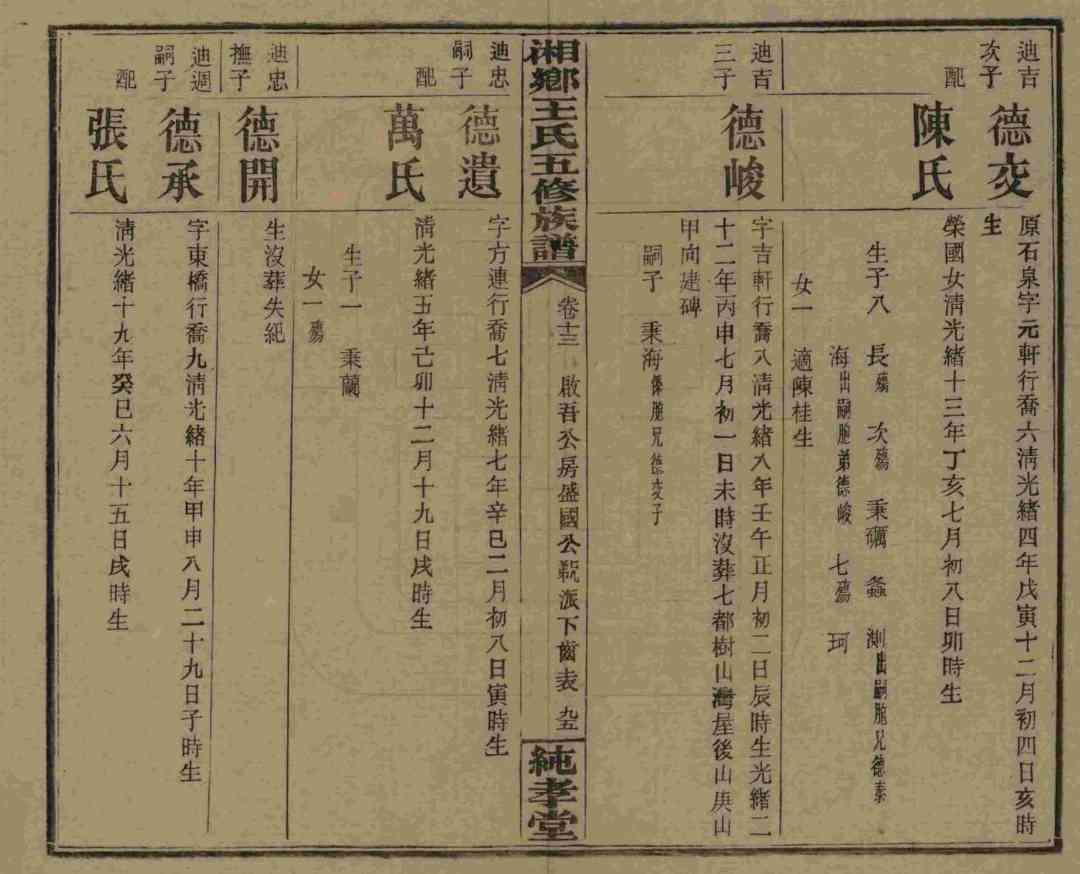 迪吉
次子
德交
原石泉字元軒行喬六淸光緒四年戊寅十二月初四日亥時
生
配
陳氏
榮國女淸光緒十三年丁亥七月初八日卯時生
生子八 長殤 次殤 秉礪 鑫 測出嗣胞兄德泰
海出嗣胞弟德峻 七殤 珂
女一 適陳桂生
迪吉
三子
德峻
字吉軒行喬八淸光緒八年壬午正月初二日辰時生光緒二
十二年丙申七月初一日未時沒葬七都樹山灣屋後山庚山
甲向建碑
嗣子 秉海係胞兄德交子
湘鄉王氏五修族譜
卷十三 啟吾公房盛國公派下齒表 九五
純孝堂
迪忠
嗣子
德遺
字方連行喬七淸光緒七年辛巳二月初八日寅時生
配
萬氏
淸光緒五年己卯十二月十九日戌時生
生子一 秉蘭
女一殤
迪忠
撫子
德開
生沒葬失紀
迪週
嗣子
德承
字東橋行喬九淸光緒十年甲申八月二十九日子時生
配
張氏
淸光緒十九年癸巳六月十五日戌時生